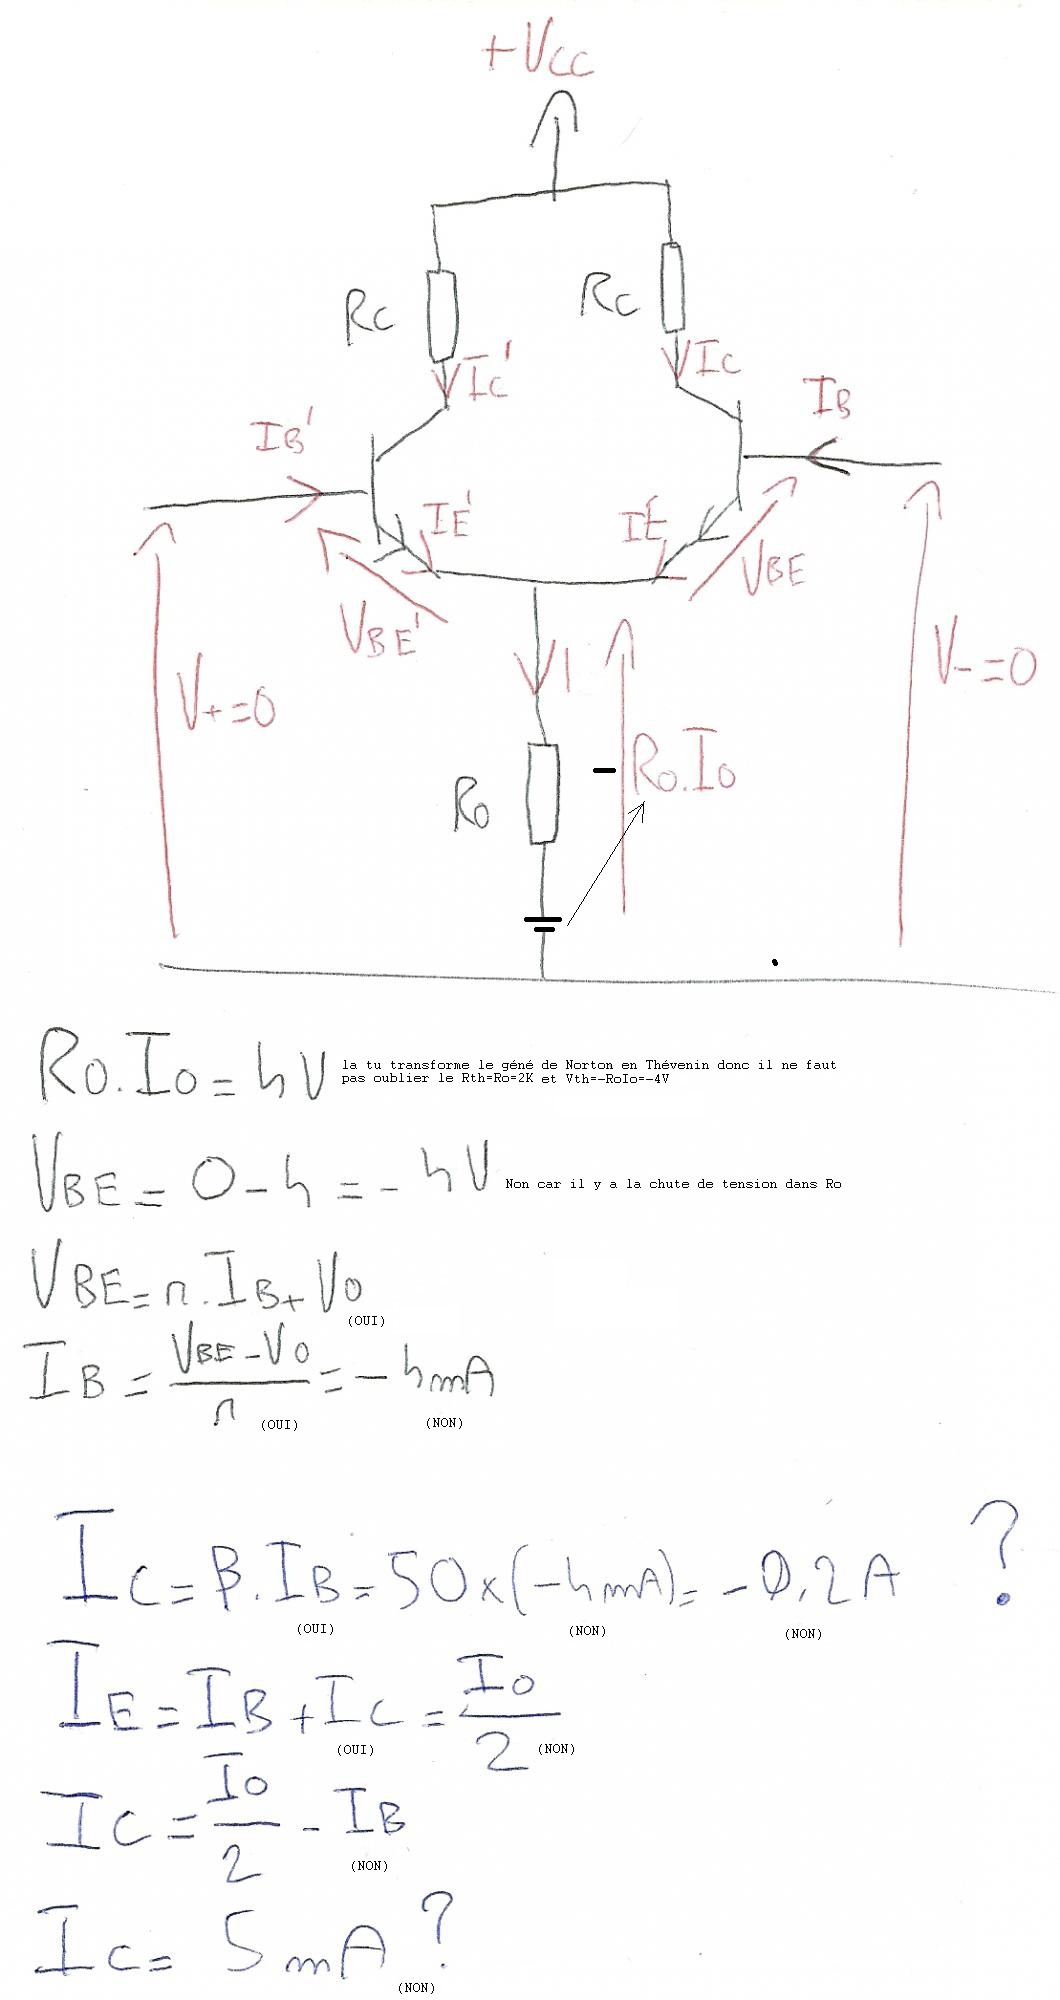 +VCC
RC
RC
IC'
IC
IB'
IB
IE'
IE
VBE'
VBE
V+=0
V-=0
I
R0
- R0.I0
R0.I0 = 4V la tu transforme le géné de Norton en Thévenin donc il ne faut
pas oublier le Rth=Ro=2K et Vth=-RoIo=-4V
VBE = 0-4 = -4V Non car il y a la chute de tension dans Ro
VBE = r.IB + V0
(OUI)
IB = (VBE-V0)/r = -4mA
(OUI) (NON)
IC = β.IB = 50x(-4mA) = -0,2A ?
(OUI) (NON) (NON)
IE = IB + IC = I0/2
(OUI) (NON)
IC = I0/2 - IB
(NON)
IC = 5mA ?
(NON)